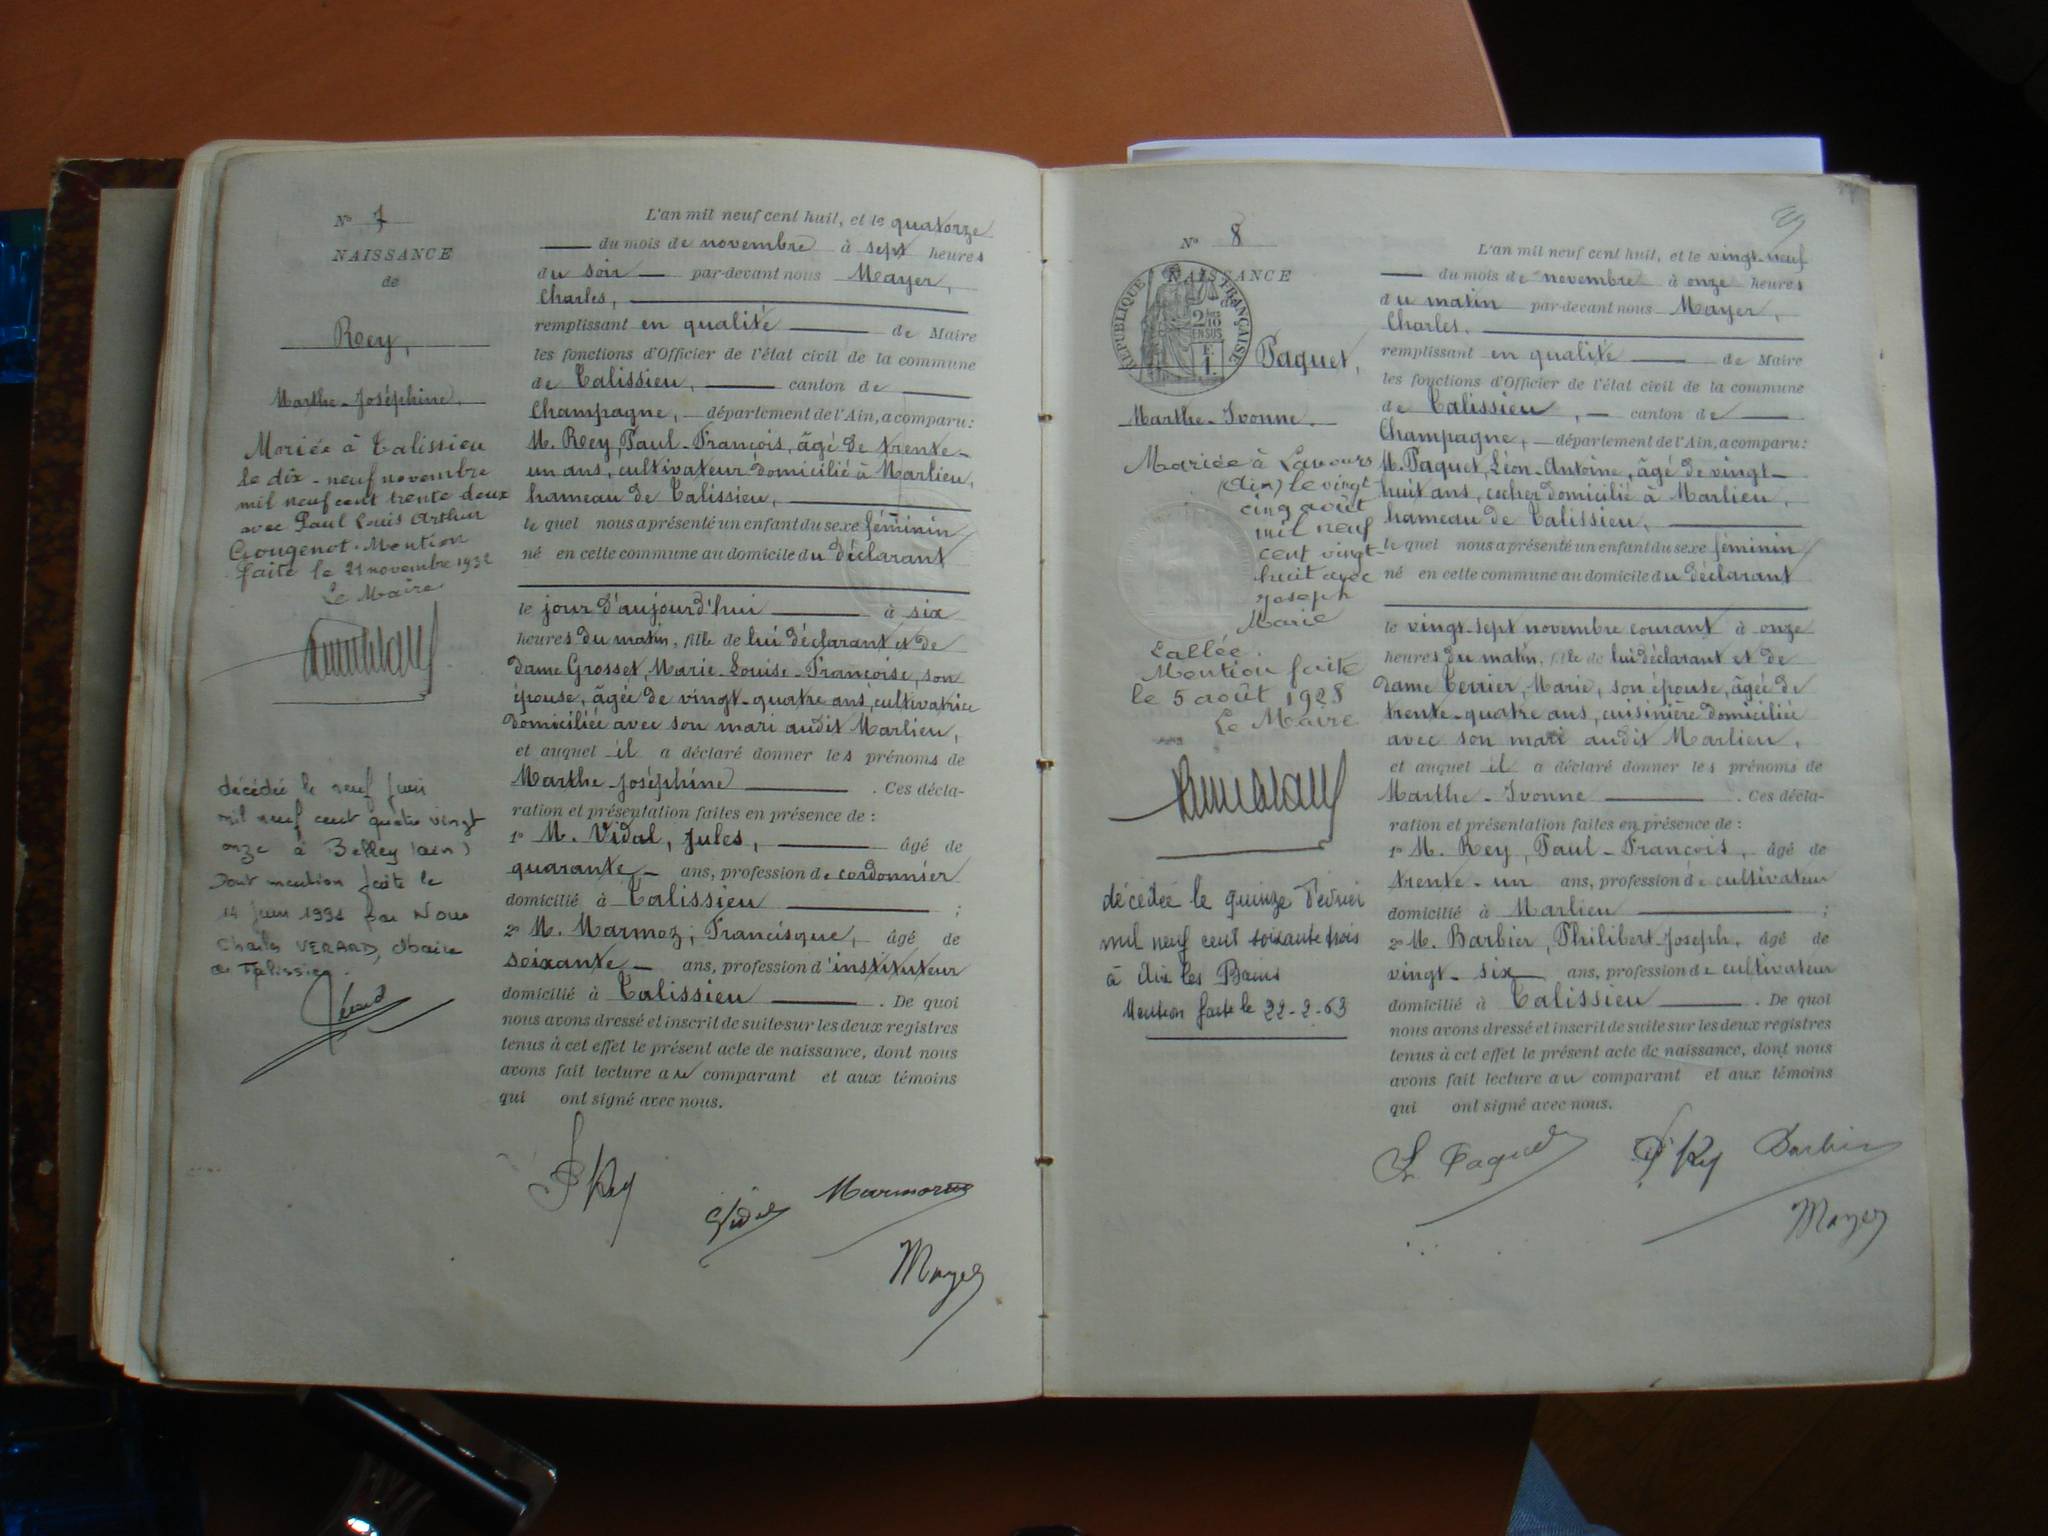 Nº 7
NAISSANCE
de
Rey,
Marthe-Joséphine.
Mariée à Talissieu
le dix-neuf novembre
mil neuf cent trente deux
avec Paul Louis Arthur
Gougenot. Mention
faite le 21 novembre 1932
Le Maire
décédée le neuf juin
mil neuf cent quatre vingt
onze à Belley (ain)
Dont mention faite le
14 juin 1991 par Nous
Charles VERARD, Maire
de Talissieu.
L'an mil neuf cent huit, et le quatorze
du mois de novembre à sept heures
du soir par-devant nous Mayer,
Charles,
remplissant en qualité de Maire
les fonctions d'Officier de l'état civil de la commune
de Talissieu, canton de
Champagne, département de l'Ain, a comparu:
M. Rey, Paul-François, âgé de trente-
un ans, cultivateur domicilié à Marlieu,
hameau de Talissieu,
le quel nous a présenté un enfant du sexe féminin
né en cette commune au domicile du déclarant
le jour d'aujourd'hui à six
heures du matin, fille de lui déclarant et de
dame Grosset, Marie-Louise-Françoise, son
épouse, âgée de vingt-quatre ans, cultivatrice
domiciliée avec son mari audit Marlieu,
et auquel il a déclaré donner les prénoms de
Marthe-Joséphine . Ces décla-
ration et présentation faites en présence de :
1º M. Vidal, Jules, âgé de
quarante- ans, profession de cordonnier
domicilié à Talissieu ;
2º M. Marmoz, Francisque, âgé de
soixante- ans, profession d'instituteur
domicilié à Talissieu . De quoi
nous avons dressé et inscrit de suite sur les deux registres
tenus à cet effet le présent acte de naissance, dont nous
avons fait lecture au comparant et aux témoins
qui ont signé avec nous.
P Rey
Vidal
Marmoz
Mayer
Nº 8
NAISSANCE
de
RÉPUBLIQUE FRANÇAISE
2/10
EN SUS
F.
1.
Paquet,
Marthe-Ivonne.
Mariée à Lavours
(Ain) le vingt
cinq août
mil neuf
cent vingt-
huit avec
Joseph
Marie
Lallée.
Mention faite
le 5 août 1928
Le Maire
décédée le quinze Février
mil neuf cent soixante trois
à Aix les Bains
Mention faite le 22-2-63
L'an mil neuf cent huit, et le vingt-neuf
du mois de novembre à onze heures
du matin par-devant nous Mayer,
Charles,
remplissant en qualité de Maire
les fonctions d'Officier de l'état civil de la commune
de Talissieu, canton de
Champagne, département de l'Ain, a comparu:
M. Paquet, Léon-Antoine, âgé de vingt-
huit ans, cocher domicilié à Marlieu,
hameau de Talissieu,
le quel nous a présenté un enfant du sexe féminin
né en cette commune au domicile du déclarant
le vingt-sept novembre courant à onze
heures du matin, fille de lui déclarant et de
dame Terrier, Marie, son épouse, âgée de
trente-quatre ans, cuisinière domiciliée
avec son mari audit Marlieu,
et auquel il a déclaré donner les prénoms de
Marthe-Ivonne . Ces décla-
ration et présentation faites en présence de :
1º M. Rey, Paul-François, âgé de
trente-un ans, profession de cultivateur
domicilié à Marlieu ;
2º M. Barbier, Philibert-Joseph, âgé de
vingt-six ans, profession de cultivateur
domicilié à Talissieu . De quoi
nous avons dressé et inscrit de suite sur les deux registres
tenus à cet effet le présent acte de naissance, dont nous
avons fait lecture au comparant et aux témoins
qui ont signé avec nous.
L Paquet
P Rey
Barbier
Mayer